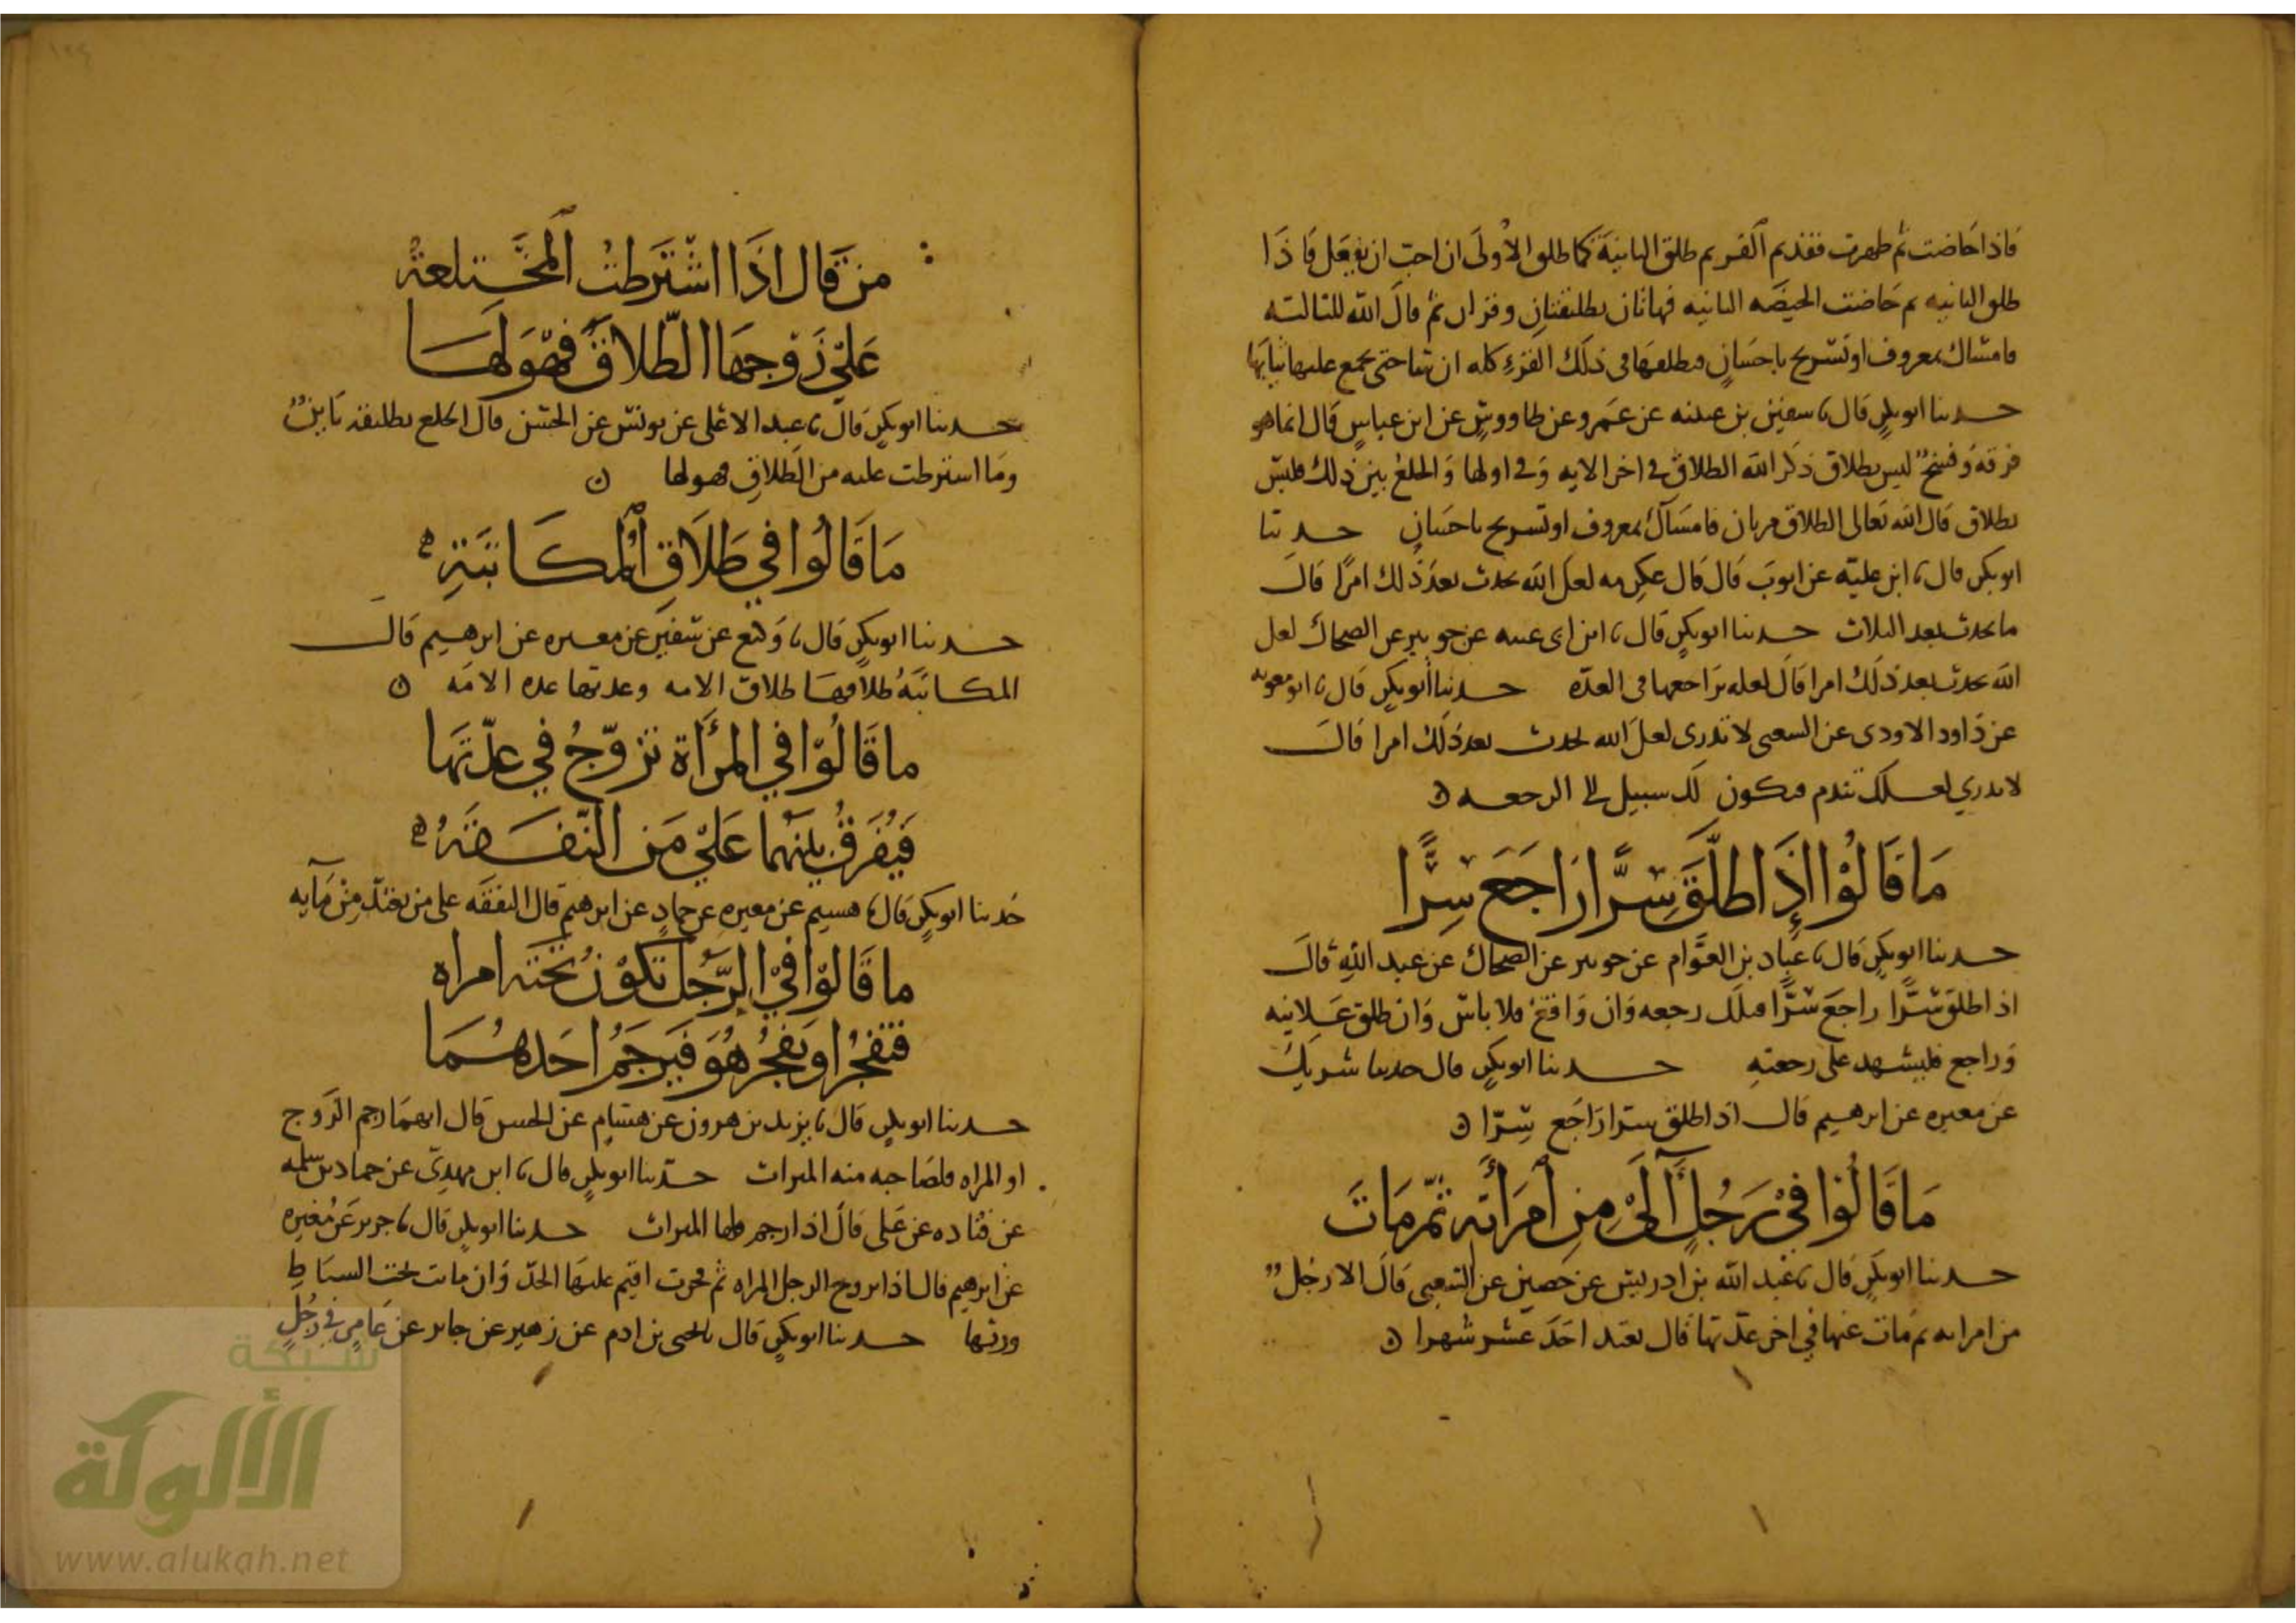 فاذا حاضت ثم طهرت فقد تم القرء ثم طلق الثانية كما طلق الاولى ان احب ان يفعل فاذا
طلق الثانيه ثم حاضت الحيضه الثانيه فهاتان تطليقتان وقرءان ثم قال الله للثالثه
فامساك بمعروف او تسريح باحسان فيطلقها في ذلك القرء كله ان شا حتى تجمع عليها ثيابها
حدثنا ابو بكر قال نا سفين بن عيينه عن عمرو عن طاووس عن ابن عباس قال انما هو
فرقة وفسخ ليس بطلاق ذكر الله الطلاق في اخر الايه وفي اولها والخلع بين ذلك فليس
بطلاق قال الله تعالى الطلاق مرتان فامساك بمعروف او تسريح باحسان حدثنا
ابو بكر قال نا ابن علية عن ايوب قال قال عكرمه لعل الله يحدث بعد ذلك امرا قال
ما يحدث بعد الثلاث حدثنا ابو بكر قال نا ابن ابي عيينه عن جويبر عن الضحاك لعل
الله يحدث بعد ذلك امرا قال لعله يراجعها في العدّه حدثنا أبو بكر قال نا ابو معويه
عن داود الاودي عن الشعبي لا تدري لعل الله يحدث بعد ذلك امرا قال
لا تدري لعلك تندم فيكون لك سبيل الى الرجعه
مَا قَالُوْا اذَا طلَّقَ سِرَّا رَاجَعَ سِرًّا
حدثنا ابو بكر قال نا عباد بن العوّام عن جويبر عن الضحاك عن عبد الله قال
اذا طلق سرًّا راجع سرًّا فتلك رجعه وان واقع فلا باس وان طلق علانيه
وراجع فليشهد على رجعته حدثنا ابو بكر قال حدثنا شريك
عن مغيره عن ابرهيم قال اذا طلق سرّا راجع سِرّا
مَا قَالُوا فيْ رَجُلٍ آلَىْ مِنِ اَمرَأَته ثمّ مَاتَ
حدثنا ابو بكر قال نا عبد الله بن ادريس عن حصين عن الشعبي قال الا رجل
من امراته ثم مات عنها في اخر عدّتها قال تعتد احد عشر شهرا
من قَال اذَا اشْتَرطتْ المُخْتَلعةُ
عَليْ زَوْجهَا الطّلاقَ فهْوَ لَهَا
حدثنا ابو بكر قال نا عبد الاعلى عن يونس عن الحسن قال الخلع تطليقة باين
وما اشترطت عليه من الطلاق فهو لها
مَا قَالُوا في طَلَاقِ المُكَاتَبَةِ
حدثنا ابو بكر قال نا وكيع عن سفين عن مغيره عن ابرهيم قال
المكاتبة طلاقها طلاق الامه وعدتها عده الامه
ما قَالُوْا في المرأَة تزوّجُ في عدّتهَا
فَيُفَرقُ بينهُما عَليْ مَن النّفَقةُ
حدثنا ابو بكر قال نا هشيم عن مغيره عن حماد عن ابرهيم قال النفقه على من تعتدّ مِنْ مآيه
ما قَالوْا فيْ الرّجُل تكوْنُ تحْتَه امراه
فتفجُرُ او يَفجُرُ هُوَ فيَرجَمُ احَدهُمَا
حدثنا ابو بكر قال نا يزيد بن هرون عن هشام عن الحسن قال ايهما رجم الزوج
او المراه فلصاحبه منه الميراث حدّثنا ابو بكر قال نا ابن مهدي عن حماد بن سلمه
عن قتاده عن علي قال اذا رجم فلها الميراث حدثنا ابو بكر قال نا جرير عن مغيره
عن ابرهيم قال اذا تزوج الرجل المراه ثم فجرت اقيم عليها الحدّ وان ماتت تحت السياط
ورثها حدثنا ابو بكر قال نا يحيى بن ادم عن زهير عن جابر عن عامر في رجل
شبكة
الألوكة
www.alukah.net